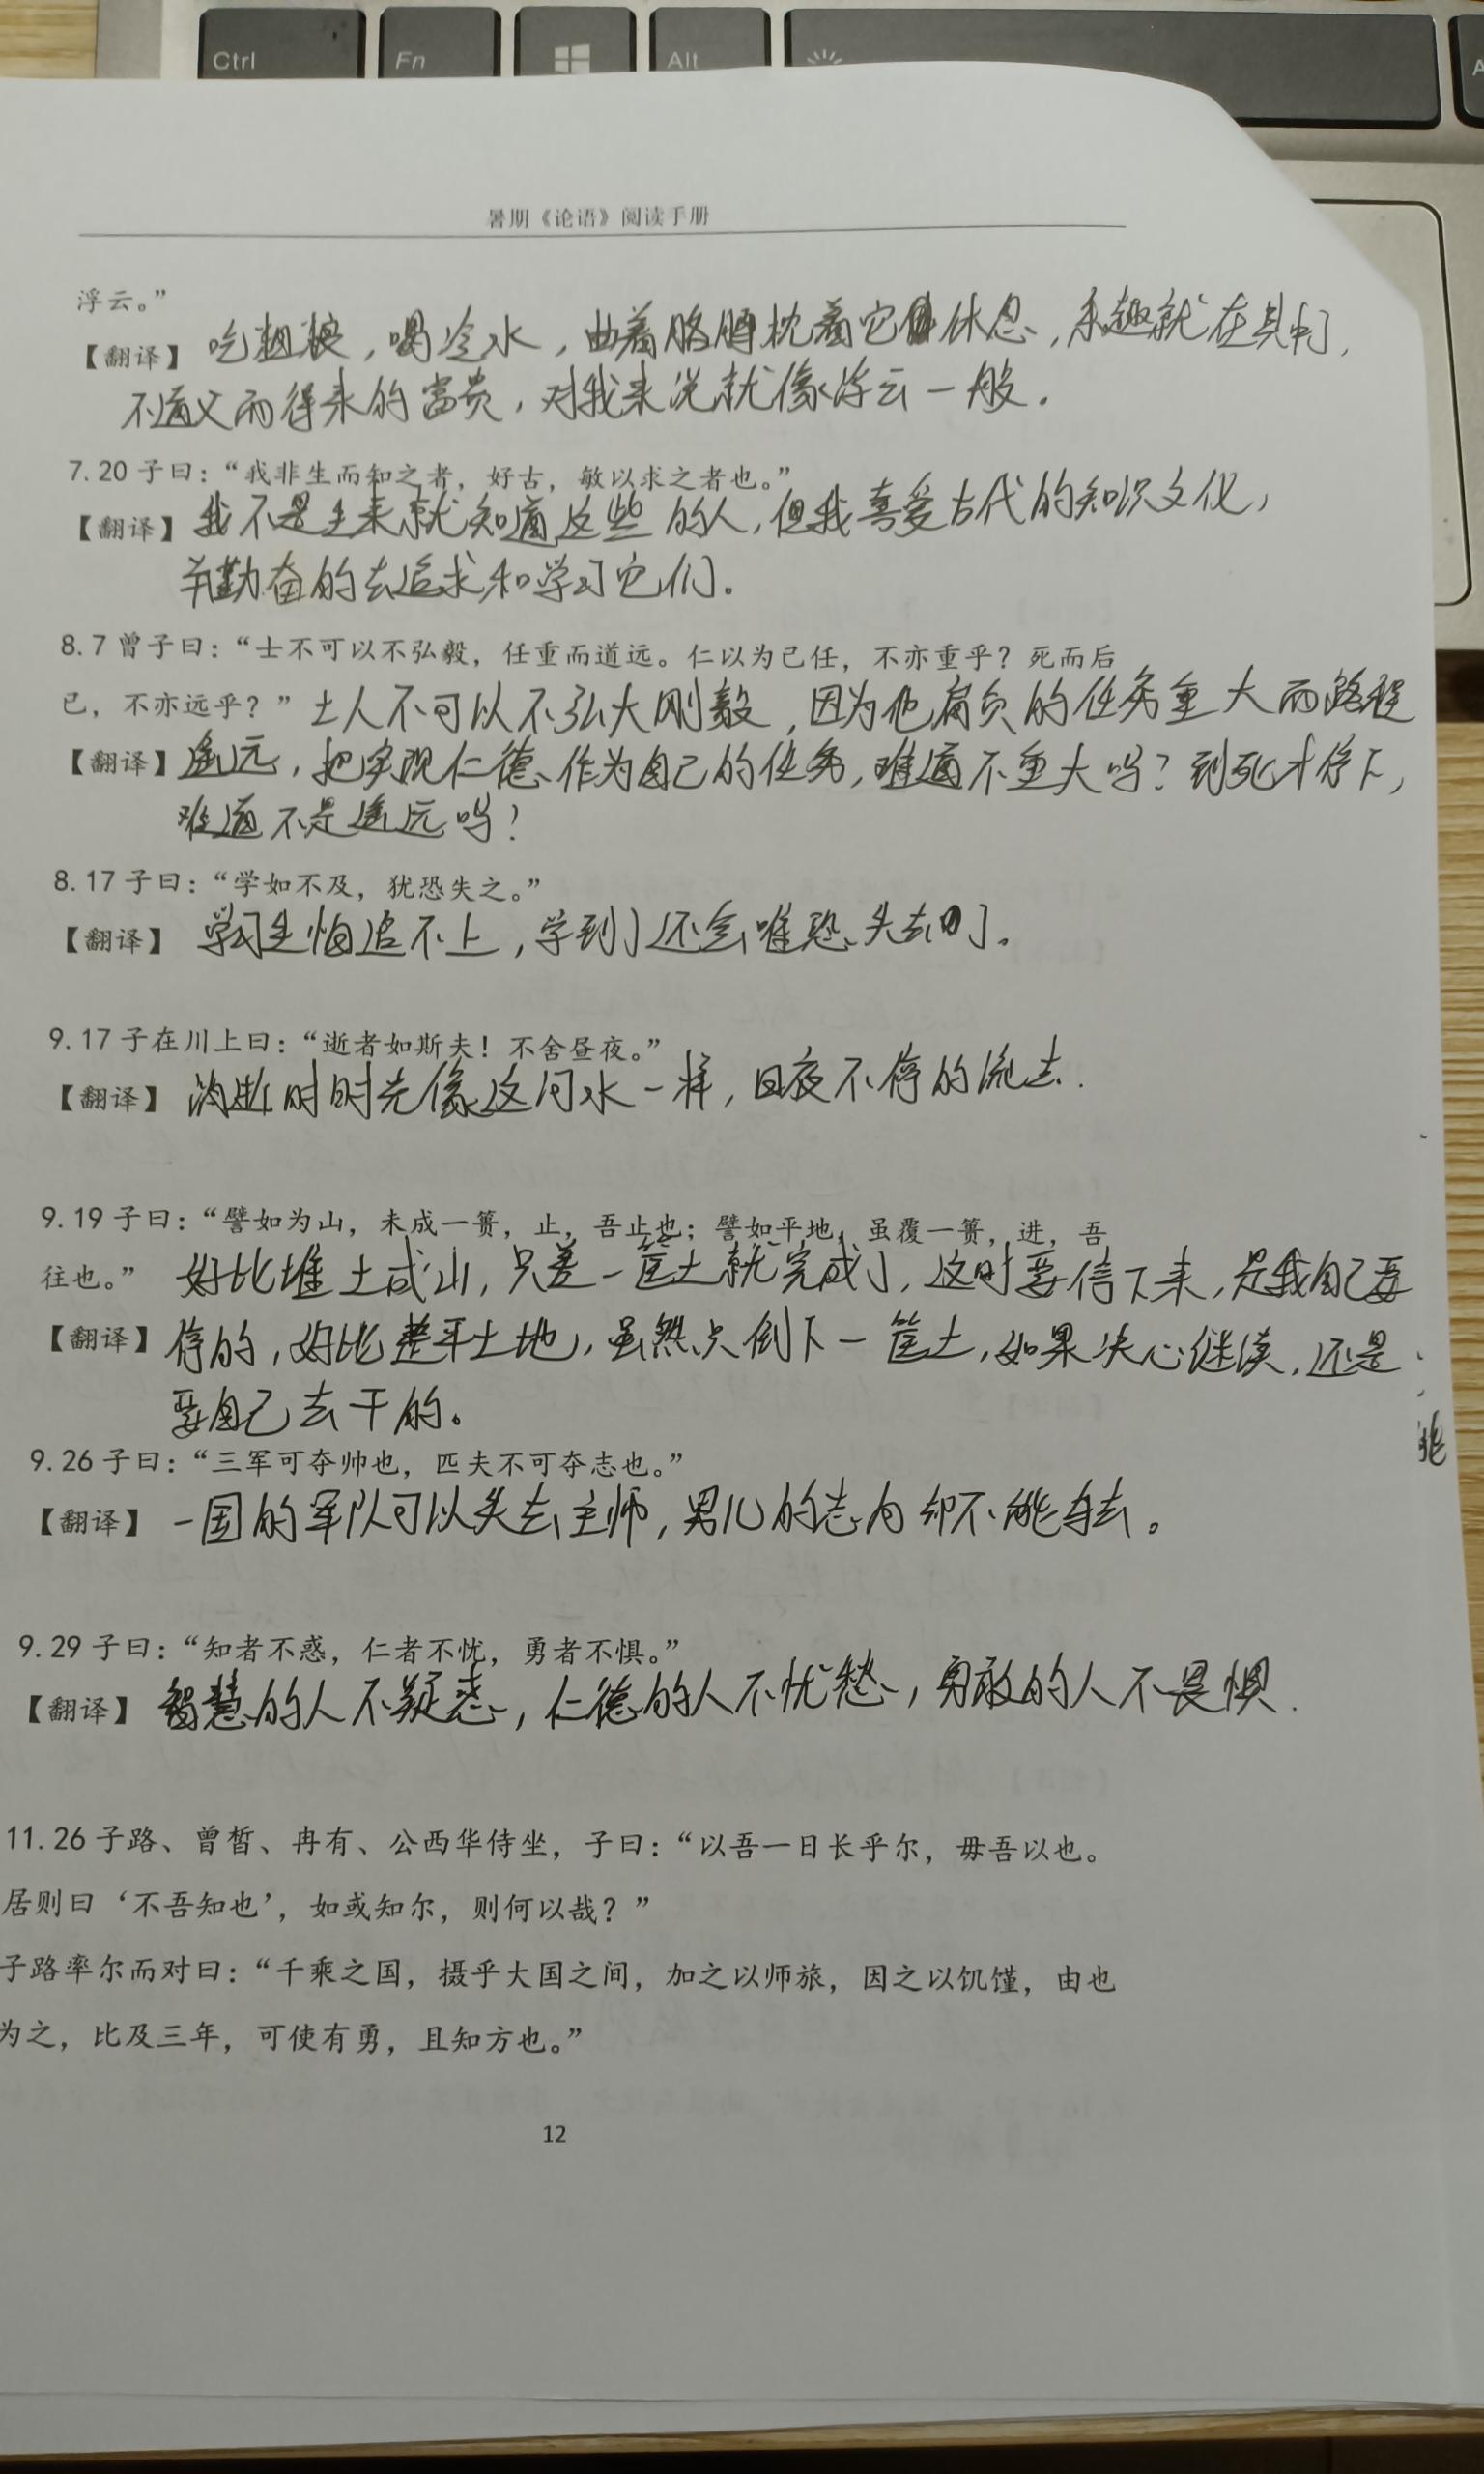 Ctrl Fn Alt
暑期《论语》阅读手册
浮云。”
【翻译】吃粗粮，喝冷水，曲着胳膊枕着它休息，乐趣就在其中了，
不道义而得来的富贵，对我来说就像浮云一般。
7.20 子曰：“我非生而知之者，好古，敏以求之者也。”
【翻译】我不是生来就知道这些的人，但我喜爱古代的知识文化，
并勤奋的去追求和学习它们。
8.7 曾子曰：“士不可以不弘毅，任重而道远。仁以为己任，不亦重乎？死而后
已，不亦远乎？”士人不可以不弘大刚毅，因为他肩负的任务重大而路程
【翻译】遥远，把实现仁德作为自己的任务，难道不重大吗？到死才停下，
难道不是遥远吗？
8.17 子曰：“学如不及，犹恐失之。”
【翻译】学习生怕追不上，学到了还会唯恐失去
9.17 子在川上曰：“逝者如斯夫！不舍昼夜。”
【翻译】消逝的时光像这河水一样，日夜不停的流去.
9.19 子曰：“譬如为山，未成一篑，止，吾止也；譬如平地，虽覆一篑，进，吾
往也。”好比堆土成山，只差一筐土就完成了，这时要停下来，是我自己要
【翻译】停的，好比整平土地，虽然只倒下一筐土，如果决心继续，还是
要自己去干的。
9.26 子曰：“三军可夺帅也，匹夫不可夺志也。”
【翻译】一国的军队可以失去主帅，男儿的志向却不能夺去。
9.29 子曰：“知者不惑，仁者不忧，勇者不惧。”
【翻译】智慧的人不疑惑，仁德的人不忧愁，勇敢的人不畏惧.
11.26 子路、曾皙、冉有、公西华侍坐，子曰：“以吾一日长乎尔，毋吾以也。
居则曰‘不吾知也’，如或知尔，则何以哉？”
子路率尔而对曰：“千乘之国，摄乎大国之间，加之以师旅，因之以饥馑，由也
为之，比及三年，可使有勇，且知方也。”
12